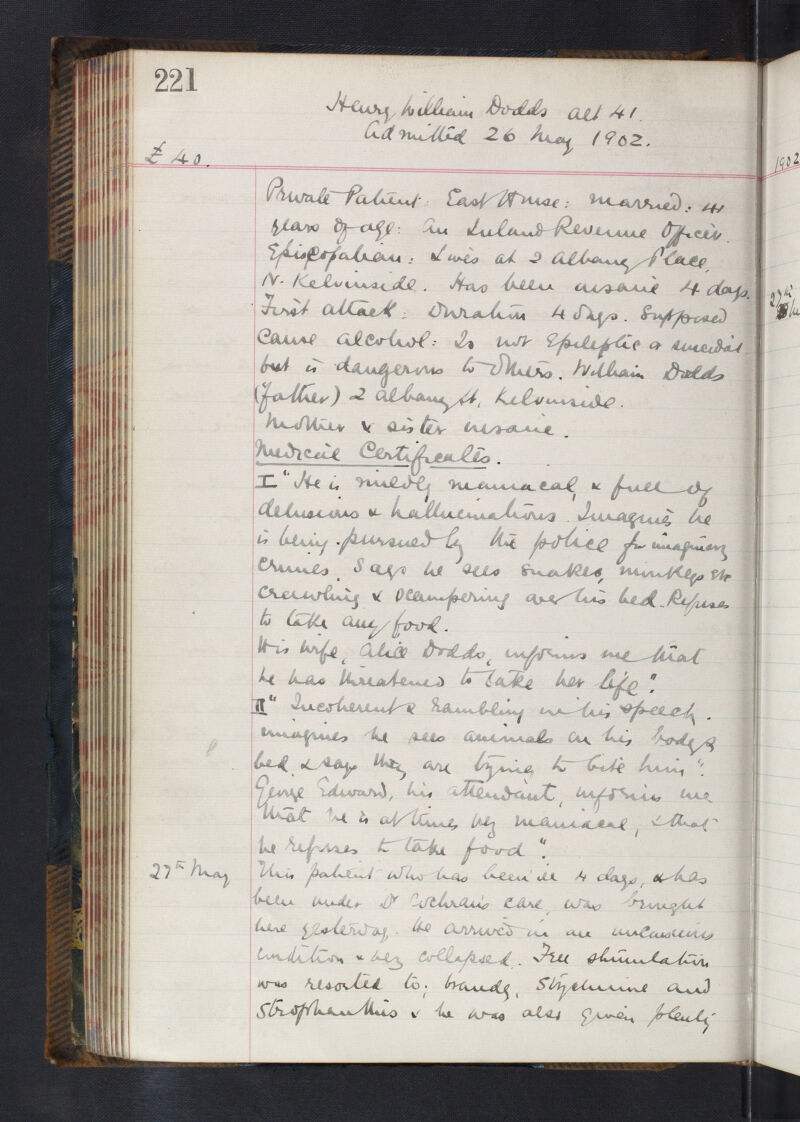 221
Henry William Dodds aet 41.
Admitted 26 May 1902.
£ 40.
1902
Private Patient: East House: married: 41
years of age: An Inland Revenue Officer.
Episcopalian: Lives at 2 Albany Place,
N. Kelvinside. Has been insane 4 days.
First attack: Duration 4 days. Supposed
cause alcohol: Is not Epileptic or suicidal
but is dangerous to others. William Dodds
(father) 2 Albany St, Kelvinside.
Mother & sister insane.
Medical Certificates.
I "He is mildly maniacal, & full of
delusions & hallucinations. Imagines he
is being pursued by the police for imaginary
crimes. Says he sees snakes, monkeys etc
crawling & scampering over his bed. Refuses
to take any food.
His wife, Alice Dodds, informs me that
he has threatened to take her life".
II "Incoherent & rambling in his speech.
imagines he sees animals on his body &
bed & says they are trying to bite him".
George Edward, his attendant, informs me
that he is at times very maniacal, & that
he refuses to take food".
27th May
This patient who has been ill 4 days, & has
been under Dr Cochran's care, was brought
here yesterday. He arrived in an unconscious
condition & very collapsed. Free stimulation
was resorted to; brandy, Strychnine and
Strophanthus & he was also given plenty
27th